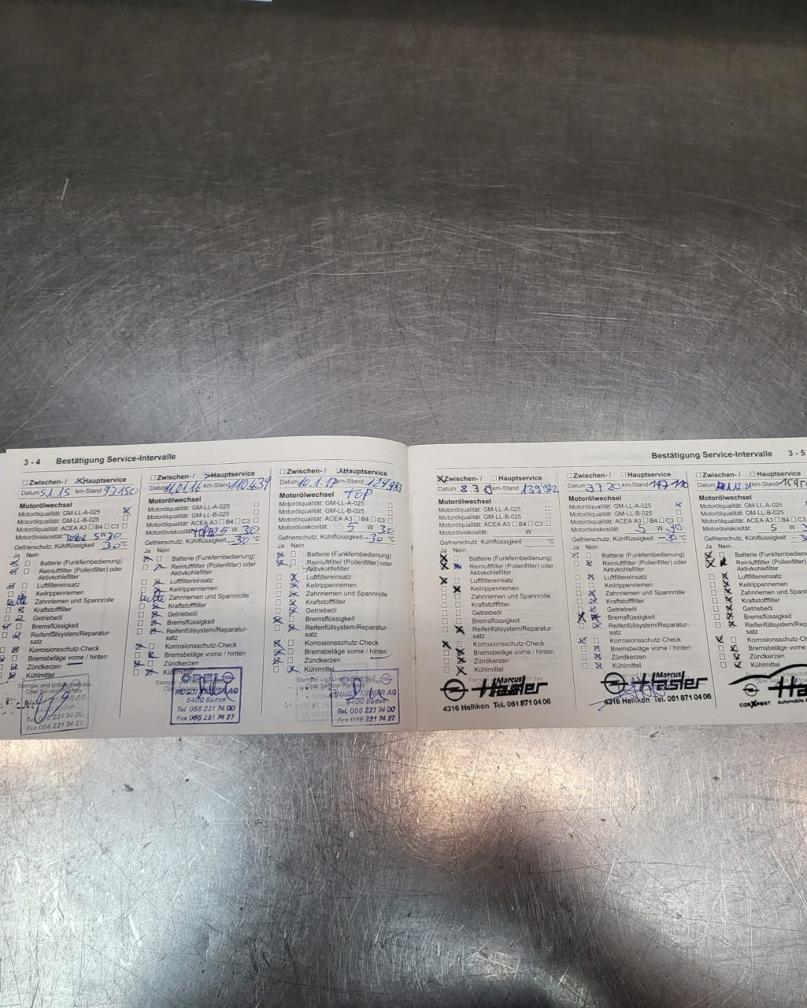 3 - 4 Bestätigung Service-Intervalle
Zwischen-/ Hauptservice
Datum 5.1.15 km-Stand 92150
Motorölwechsel
Motorölqualität: GM-LL-A-025
Motorölqualität: GM-LL-B-025
Motorölqualität: ACEA A3 B4 C3
Motorölviskosität 5W30
Gefrierschutz, Kühlflüssigkeit 30 °C
Ja Nein
Batterie (Funkfernbedienung)
Reinluftfilter (Pollenfilter) oder
Aktivkohlefilter
Luftfiltereinsatz
Keilrippenriemen
Zahnriemen und Spannrolle
Kraftstofffilter
Getriebeöl
Bremsflüssigkeit
Reifenfüllsystem/Reparatur-
satz
Korrosionsschutz-Check
Bremsbeläge vorne / hinten
Zündkerzen
Kühlmittel
5400 Baden
Tel. 056 221 74 00
Fax 056 221 74 27
Zwischen-/ Hauptservice
Datum km-Stand 110439
Motorölwechsel
Motorölqualität: GM-LL-A-025
Motorölqualität: GM-LL-B-025
Motorölqualität: ACEA A3 B4 C3
Motorölviskosität 30
Gefrierschutz, Kühlflüssigkeit -30 °C
Ja Nein
Batterie (Funkfernbedienung)
Reinluftfilter (Pollenfilter) oder
Aktivkohlefilter
Luftfiltereinsatz
Keilrippenriemen
Zahnriemen und Spannrolle
Kraftstofffilter
Getriebeöl
Bremsflüssigkeit
Reifenfüllsystem/Reparatur-
satz
Korrosionsschutz-Check
Bremsbeläge vorne / hinten
Zündkerzen
OPEL
5400 Baden
Tel. 056 221 74 00
Fax 056 221 74 27
Zwischen-/ Hauptservice
Datum 10.1.17 km-Stand
Motorölwechsel TOP
Motorölqualität: GM-LL-A-025
Motorölqualität: GM-LL-B-025
Motorölqualität: ACEA A3 B4 C3
Motorölviskosität 5 W 30
Gefrierschutz, Kühlflüssigkeit -30 °C
Ja Nein
Batterie (Funkfernbedienung)
Reinluftfilter (Pollenfilter) oder
Aktivkohlefilter
Luftfiltereinsatz
Keilrippenriemen
Zahnriemen und Spannrolle
Kraftstofffilter
Getriebeöl
Bremsflüssigkeit
Reifenfüllsystem/Reparatur-
satz
Korrosionsschutz-Check
Bremsbeläge vorne / hinten
Zündkerzen
Kühlmittel
5400 Baden
Tel. 056 221 74 00
Fax 056 221 74 27
Bestätigung Service-Intervalle 3 - 5
Zwischen-/ Hauptservice
Datum km-Stand 139922
Motorölwechsel
Motorölqualität: GM-LL-A-025
Motorölqualität: GM-LL-B-025
Motorölqualität: ACEA A3 B4 C3
Motorölviskosität W
Gefrierschutz, Kühlflüssigkeit °C
Ja Nein
Batterie (Funkfernbedienung)
Reinluftfilter (Pollenfilter) oder
Aktivkohlefilter
Luftfiltereinsatz
Keilrippenriemen
Zahnriemen und Spannrolle
Kraftstofffilter
Getriebeöl
Bremsflüssigkeit
Reifenfüllsystem/Reparatur-
satz
Korrosionsschutz-Check
Bremsbeläge vorne / hinten
Zündkerzen
Kühlmittel
Marcus
Hasler
4316 Hellikon Tel. 061 871 04 06
Zwischen-/ Hauptservice
Datum 3 7 20 km-Stand
Motorölwechsel
Motorölqualität: GM-LL-A-025
Motorölqualität: GM-LL-B-025
Motorölqualität: ACEA A3 B4 C3
Motorölviskosität 5 W 30
Gefrierschutz, Kühlflüssigkeit °C
Ja Nein
Batterie (Funkfernbedienung)
Reinluftfilter (Pollenfilter) oder
Aktivkohlefilter
Luftfiltereinsatz
Keilrippenriemen
Zahnriemen und Spannrolle
Kraftstofffilter
Getriebeöl
Bremsflüssigkeit
Reifenfüllsystem/Reparatur-
satz
Korrosionsschutz-Check
Bremsbeläge vorne / hinten
Zündkerzen
Kühlmittel
Marcus
Hasler
4316 Hellikon Tel. 061 871 04 06
Zwischen-/ Hauptservice
Datum km-Stand
Motorölwechsel
Motorölqualität: GM-LL-A-025
Motorölqualität: GM-LL-B-025
Motorölqualität: ACEA A3 B4 C3
Motorölviskosität 5 W
Gefrierschutz, Kühlflüssigkeit
Ja Nein
Batterie (Funkfernbedienung)
Reinluftfilter (Pollenfilter) oder
Aktivkohlefilter
Luftfiltereinsatz
Keilrippenriemen
Zahnriemen und Spannrolle
Kraftstofffilter
Getriebeöl
Bremsflüssigkeit
Reifenfüllsystem/Reparatur-
satz
Korrosionsschutz-Ch
Bremsbeläge vorne / hi
Zündkerzen
Kühlmittel
Ha
carXpert